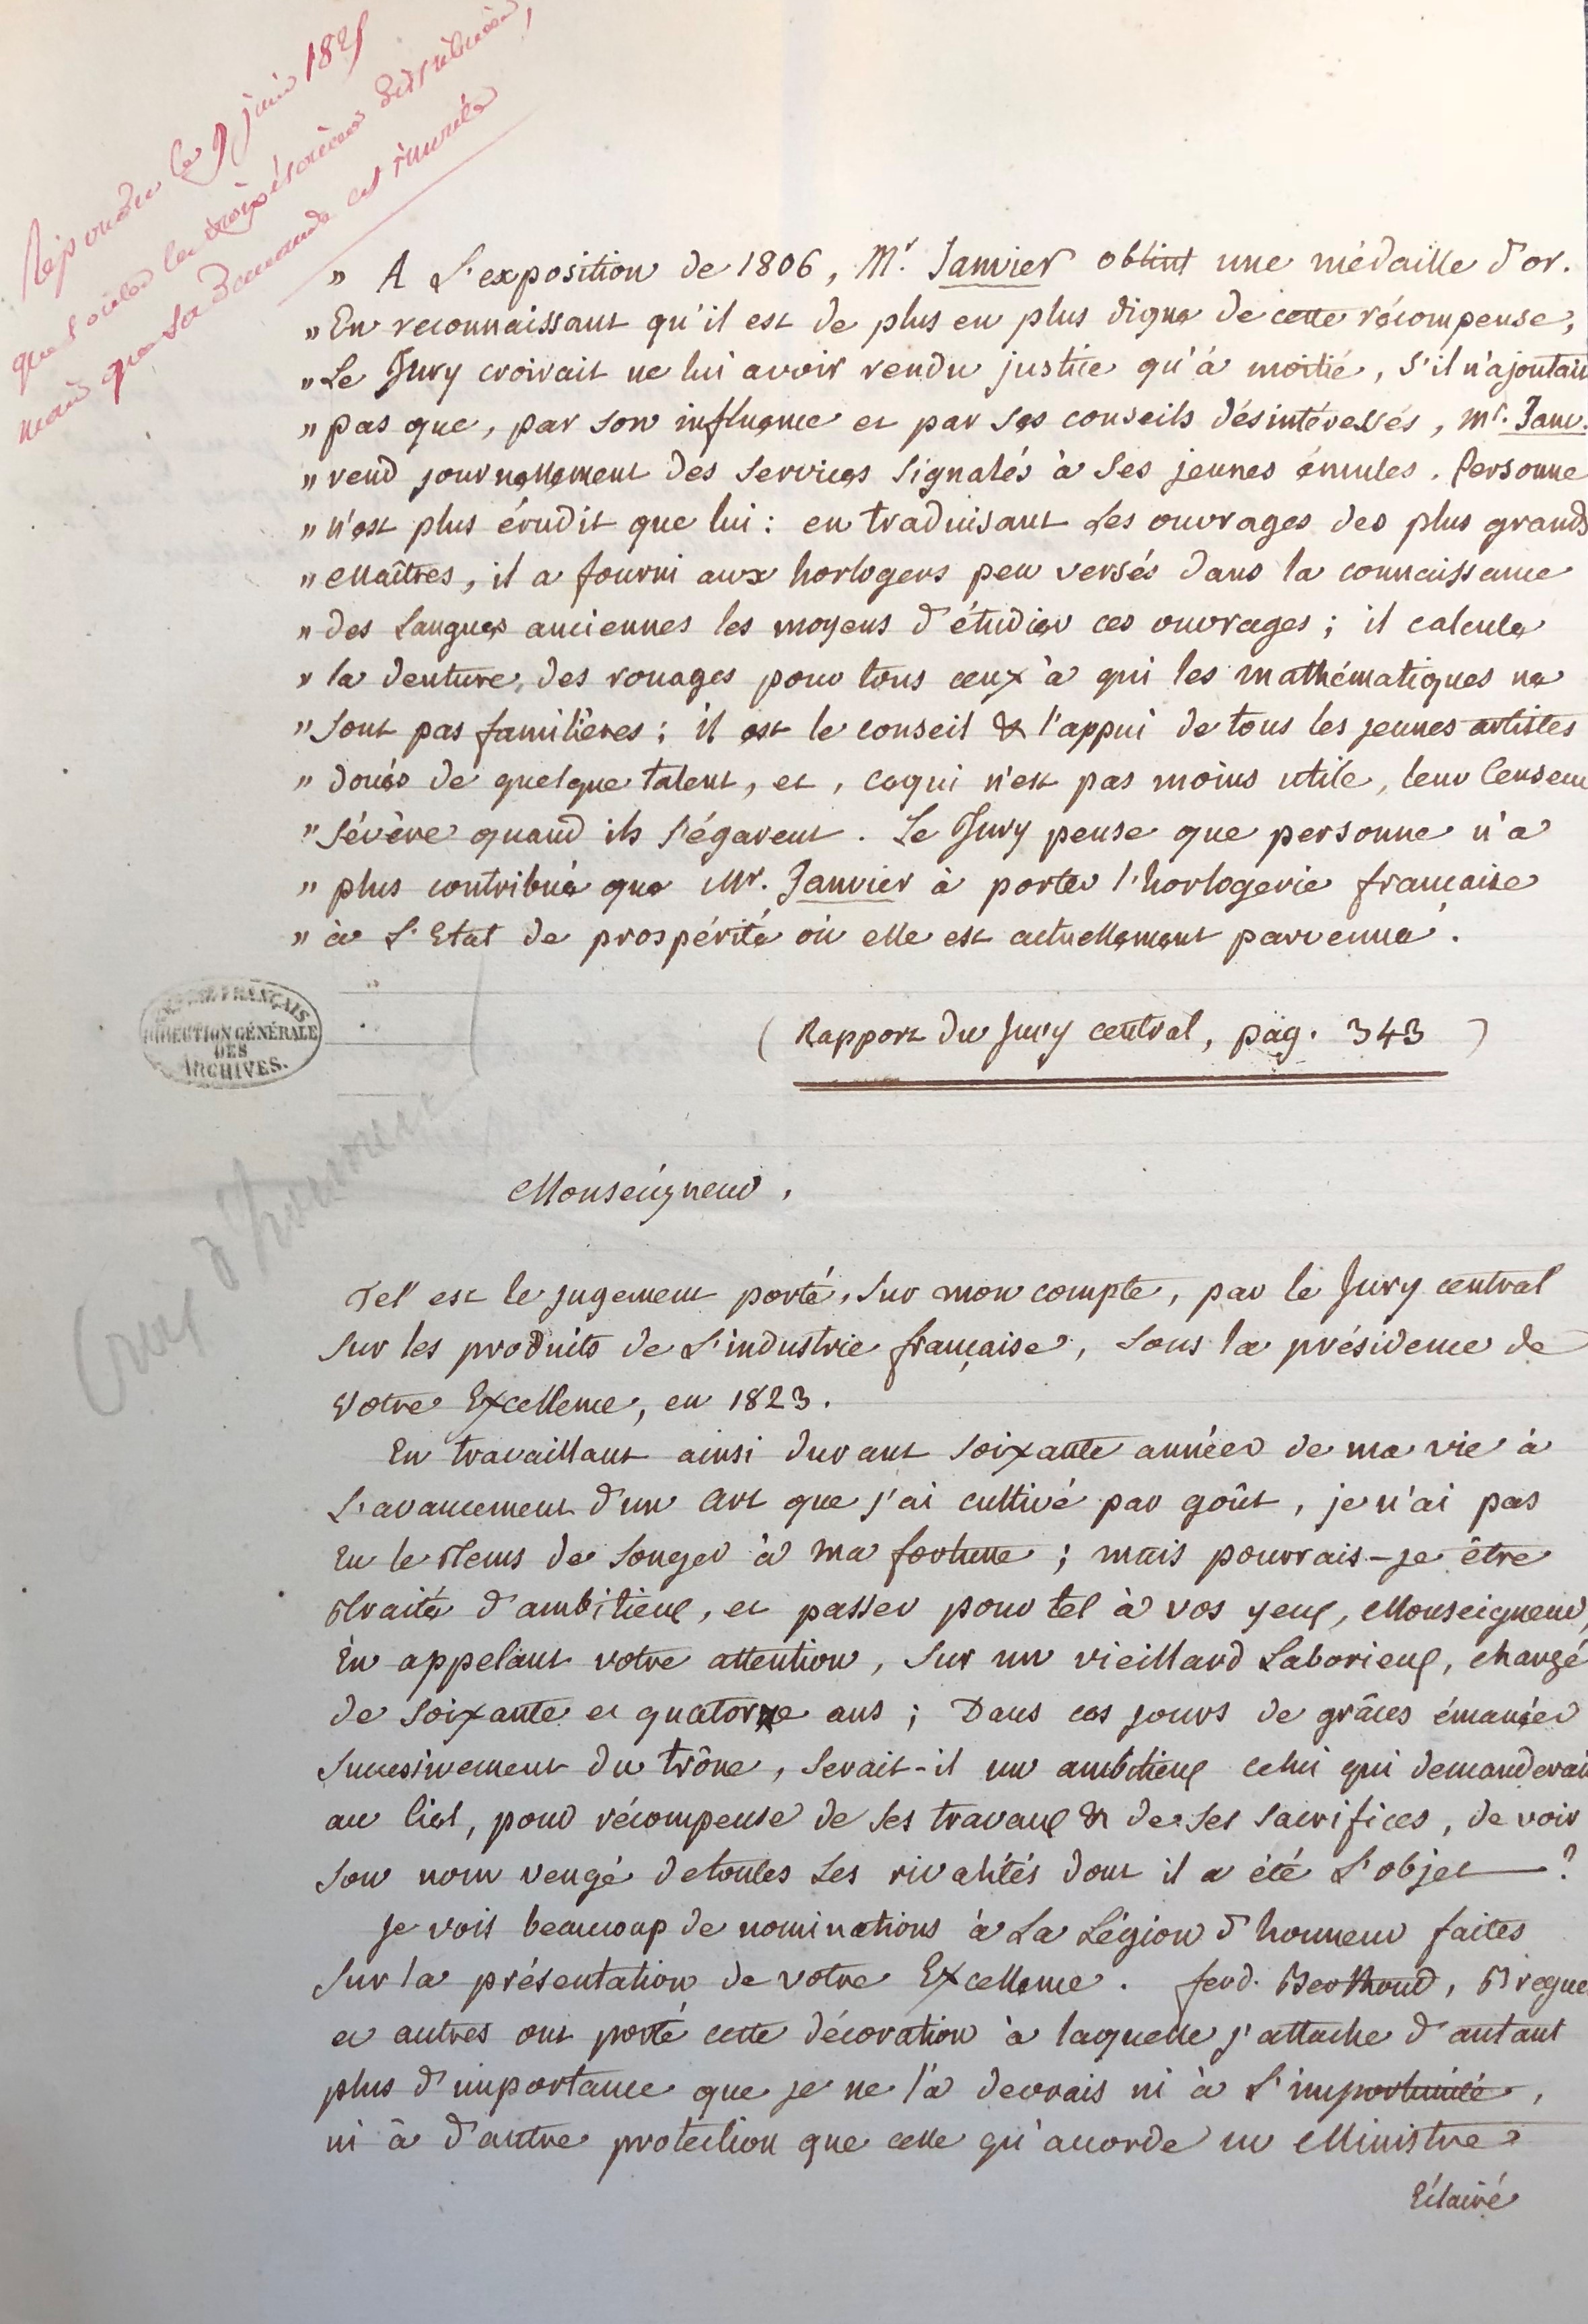 Répondu le 9 juin 1825
que toutes les croix étaient distribuées,
mais que sa demande est
" A L'exposition de 1806, Mr. Janvier obtint une médaille d'or.
" En reconnaissant qu'il est de plus en plus digne de cette récompense,
" Le Jury croirait ne lui avoir rendu justice qu'à moitié, s'il n'ajoutait
" pas que, par son influence et par ses conseils désintéressés, Mr. Janv.
" rend journellement des services signalés à ses jeunes émules. Personne
" n'est plus érudit que lui : en traduisant les ouvrages des plus grands
" Maîtres, il a fourni aux horlogers peu versés dans la connaissance
" des Langues anciennes les moyens d'étudier ces ouvrages ; il calcule
" la denture des rouages pour tous ceux à qui les mathématiques ne
" sont pas familières ; il est le conseil & l'appui de tous les jeunes artistes
" doués de quelque talent, et, ce qui n'est pas moins utile, leur Censeur
" Sévère quand ils s'égarent. Le Jury pense que personne n'a
" plus contribué que Mr. Janvier à porter l'horlogerie française
" à L'Etat de prospérité où elle est actuellement parvenue.
FRANÇAIS
DIRECTION GÉNÉRALE
DES
ARCHIVES.
( Rapport du Jury central, pag. 343 )
Croix d'honneur
Monseigneur,
Tel est le jugement porté, sur mon compte, par le Jury central
sur les produits de L'industrie française, sous la présidence de
Votre Excellence, en 1823.
En travaillant ainsi durant soixante années de ma vie à
L'avancement d'un Art que j'ai cultivé par goût, je n'ai pas
Eu le tems de songer à ma fortune ; mais pourrais-je être
traité d'ambitieux, et passer pour tel à vos yeux, Monseigneur,
En appelant votre attention, sur un vieillard Laborieux, chargé
de soixante et quatorze ans ; Dans ces jours de grâces émanées
Successivement du trône, serait-il un ambitieux celui qui demanderait
au Ciel, pour récompense de ses travaux & de ses sacrifices, de voir
son nom vengé de toutes les rivalités dont il a été L'objet ?
Je vois beaucoup de nominations à La Légion d'honneur faites
sur la présentation de votre Excellence. ferd. Berthoud, Bregue
et autres ont porté cette décoration à laquelle j'attache d'autant
plus d'importance que je ne la devrais ni à L'importunité,
ni à d'autre protection que celle qu'accorde un Ministre
Eclairé